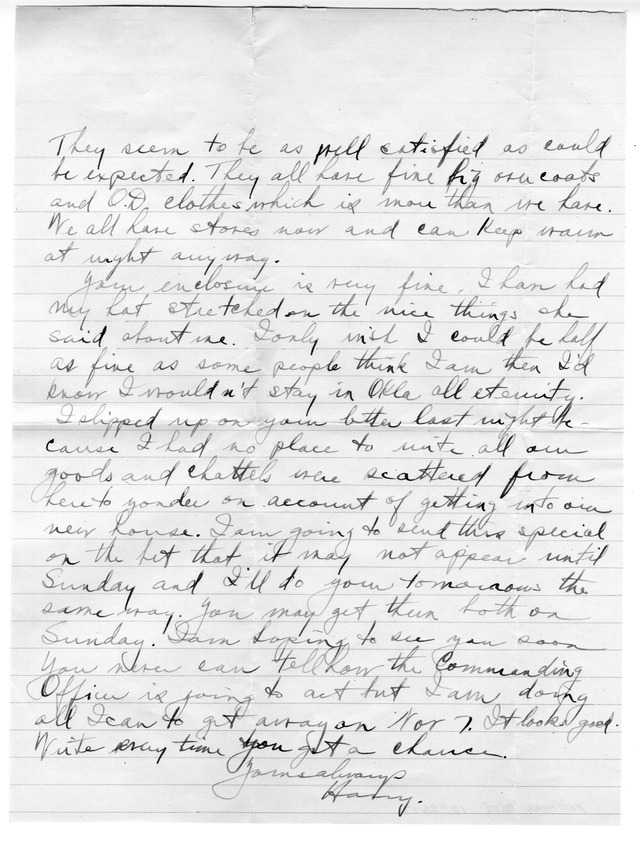 They seem to be as well satisfied as could
be expected. They all have fine big overcoats
and O.D. clothes which is more than we have.
We all have stoves now and can keep warm
at night anyway.
Your enclosure is very fine. I have had
my hat stretched on the nice things she
said about me. I only wish I could be half
as fine as some people think I am then I'd
know I wouldn't stay in Okla all eternity.
I slipped up on your letter last night be-
cause I had no place to write all our
goods and chattels were scattered from
here to yonder on account of getting into our
new house. I am going to send this special
on the bet that it may not appear until
Sunday and I'll do your tomorrows the
same way. You may get them both on
Sunday. I am hoping to see you soon
You never can tell how the Commanding
Officer is going to act but I am doing
all I can to get away on Nov 7. It looks good.
Write every time you get a chance.
Yours always
Harry.